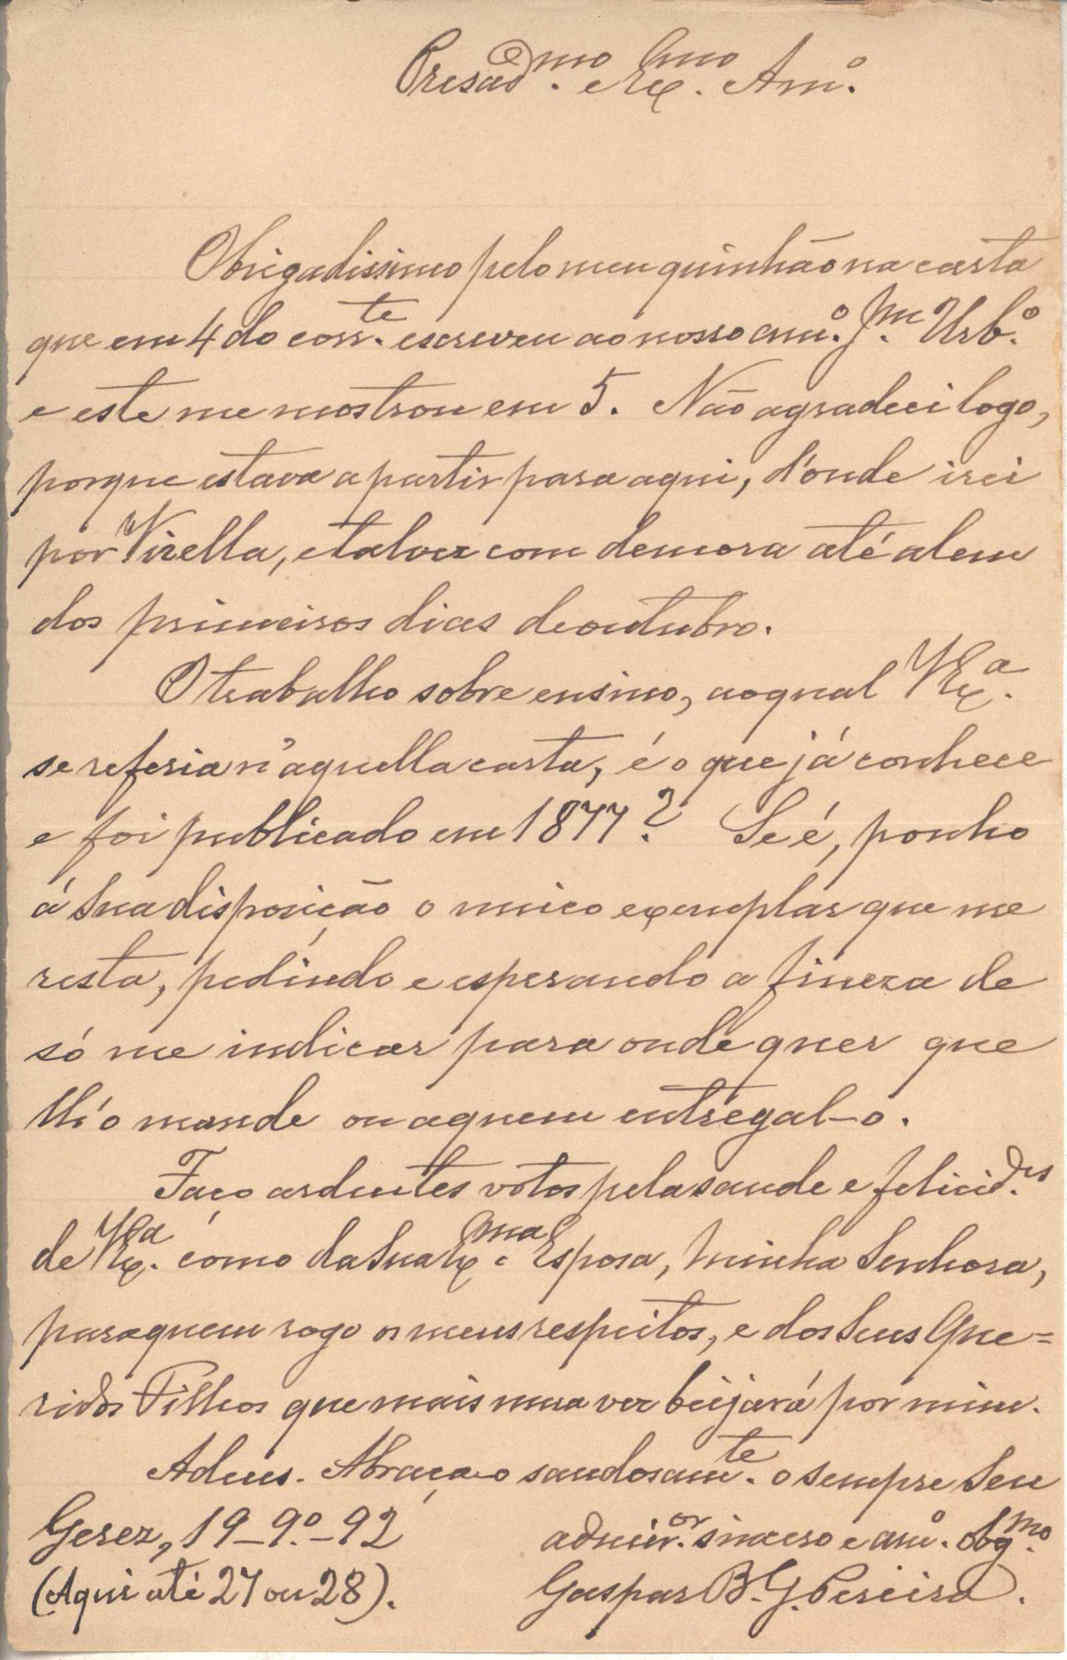 Presad.mo e Ex.mo Am.o
Obrigadissimo pelo meu quinhão na carta
que em 4 do corr.te escreveu ao nosso am.o J.m Urb.o
e este me mostrou em 5. Não agradeci logo,
porque estava a partir para aqui, d'onde irei
por Vizella, e talvez com demora até alem
dos primeiros dias de outubro.
O trabalho sobre ensino, ao qual V Ex.a
se referia n'aquella carta, é o que já conhece
e foi publicado em 1877? Se é, ponho
á Sua disposição o unico exemplar que me
resta, pedindo e esperando a fineza de
só me indicar para onde quer que
lh'o mande ou a quem entregal-o.
Faço ardentes votos pela saude e felicid.des
de V Ex.a como da Sua Ex.ma Esposa, Minha Senhora,
para quem rogo os meus respeitos, e dos Seus Que=
ridos Filhos que mais uma vez beijará por mim.
Adeus. Abraça-o saudosam.te o sempre Seu
Gerez, 19-9.o-92 admir.or sincero e am.o obg.mo
(Aqui até 27 ou 28). Gaspar B. G. Pereira.